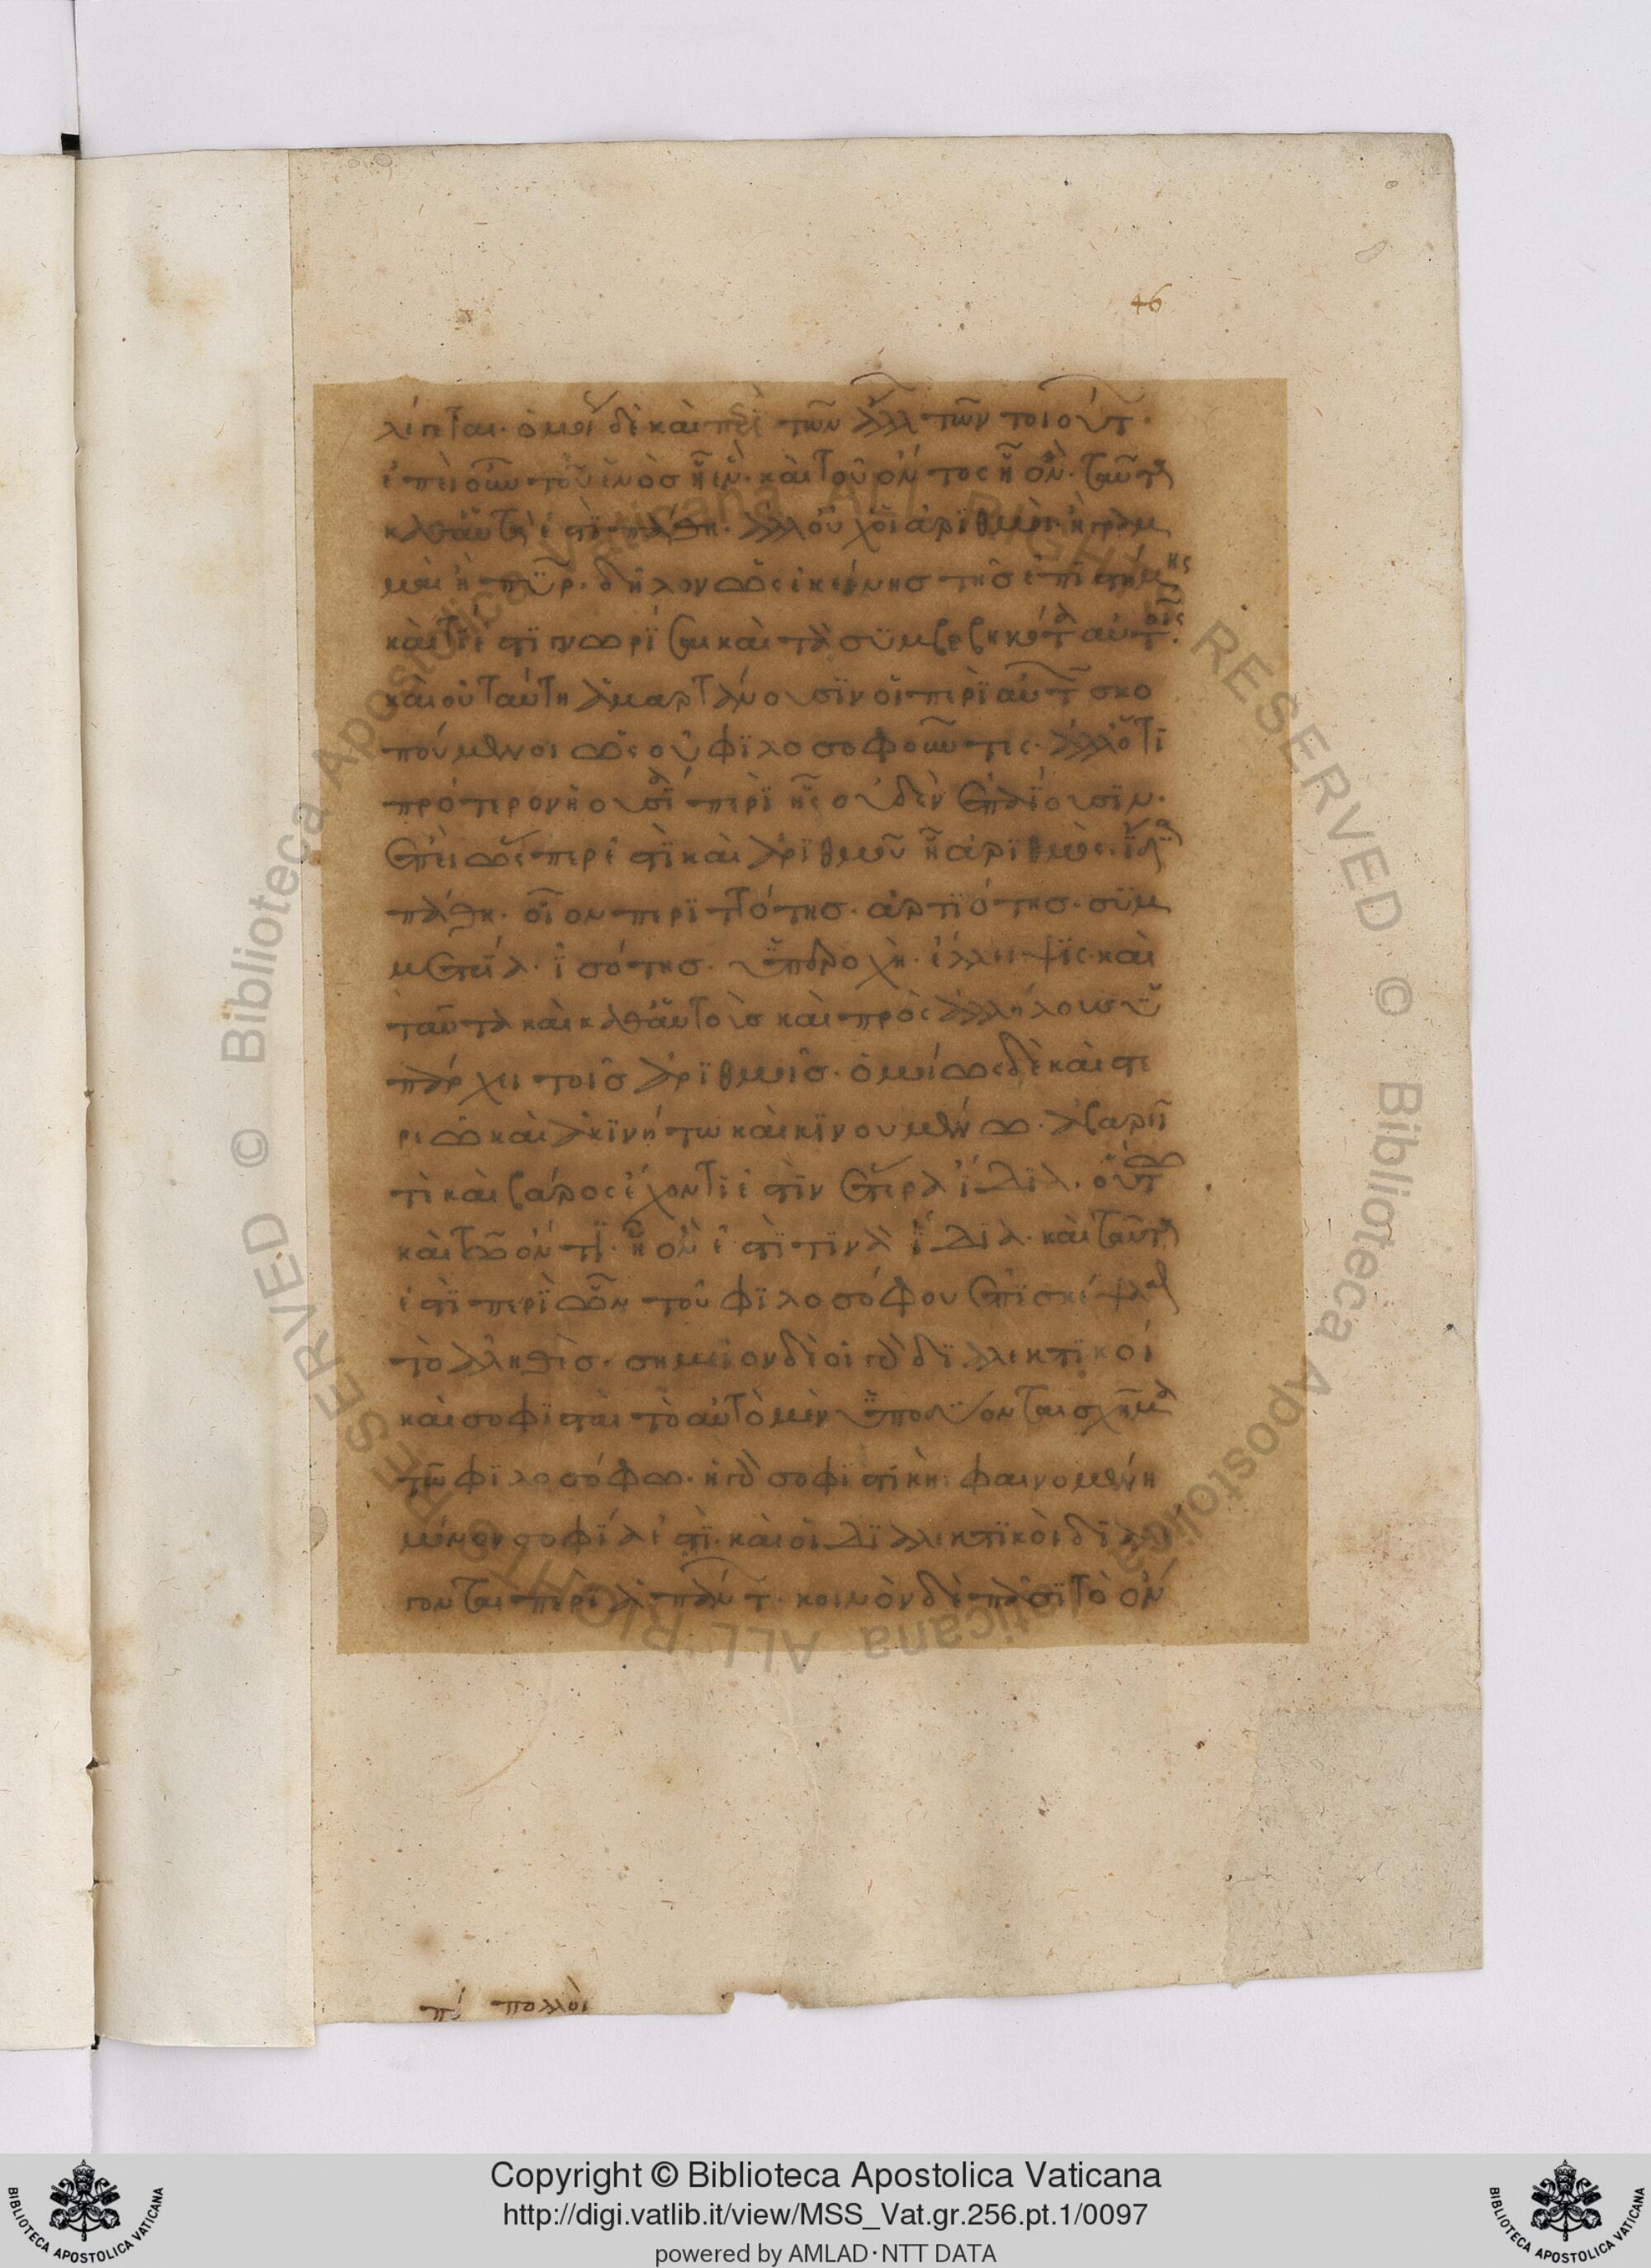 46
λέγεται· ὁμοί δὲ καὶ περὶ τῶν ἄλλ τῶν τοιούτ·
ἐπεὶ οὖν τοῦ ἑνὸς ἧ ἕν· καὶ τοῦ ὄντος ἧ ὄν· ταῦτα
καθαὑτά ἐστι πάθη· ἀλλ οὐχ ᾗ ἀριθμοὶ ἢ γραμ
μαὶ ἢ πῦρ· δῆλον ὡς ἐκείνης τῆς ἐπιστήμης
καὶ τί ἐστι γνωρίσαι καὶ τὰ συμβεβηκότα αὐτοῖς·
καὶ οὐ ταύτη ἁμαρτάνουσιν οἱ περὶ αὐτ σκο
πούμενοι ὡς οὐ φιλοσοφοῦντες· ἀλλ ὅτι
πρότερον ἡ οὐσία περὶ ἧς οὐδὲν ἐπαΐουσιν·
ἐπεὶ ὥσπερ ἐστὶ καὶ ἀριθμοῦ ἧ ἀριθμὸς ἴδια
πάθη· οἷον περιττότης· ἀρτιότης· συμ
μετρία· ἰσότης· ὑπεροχὴ· ἔλλειψις· καὶ
ταῦτα καὶ καθαὑτοὺς καὶ πρὸς ἀλλήλους ὑ
πάρχει τοῖς ἀριθμοῖς· ὁμοίως δὲ καὶ στε
ρεῶ καὶ ἀκινήτω καὶ κινουμένω· ἀβαρεῖ
τὲ καὶ βάρος ἔχοντι ἐστὶν ἕτερα ἴδια· οὕτω
καὶ τῶ ὄντι ἧ ὄν ἐστί τινα ἴδια· καὶ ταῦτα
ἐστὶ περὶ ὧν τοῦ φιλοσόφου ἐπισκέψασ
τὸ ἀληθὲς· σημεῖον δὲ οἱ γὰρ διαλεκτικοί
καὶ σοφισταὶ τὸ αὐτὸ μὲν ὑποδύονται σχῆμα
τῶ φιλοσόφω· ἡ γὰρ σοφιστικὴ φαινομένη
μόνον σοφία ἐστί· καὶ οἱ διαλεκτικοὶ διαλέ
γονται περὶ ἁπάντ· κοινὸν δὲ πᾶσι τὸ ὄν
πολλοὶ
Copyright © Biblioteca Apostolica Vaticana
http://digi.vatlib.it/view/MSS_Vat.gr.256.pt.1/0097
powered by AMLAD·NTT DATA
BIBLIOTECA APOSTOLICA VATICANA
BIBLIOTECA APOSTOLICA VATICANA
© Biblioteca Apostolica Vaticana ALL RIGHTS RESERVED © Biblioteca Apostolica Vaticana ALL RIGHTS RESERVED